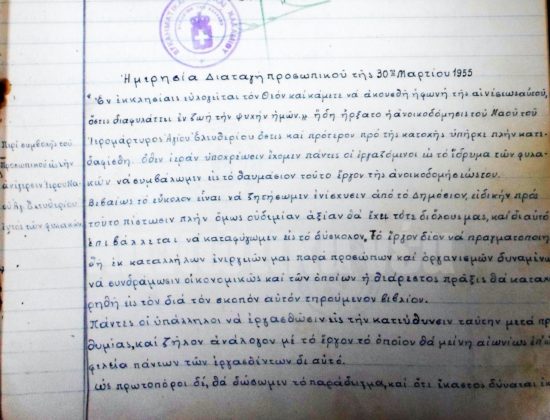 Ἡμερησία Διαταγὴ προσωπικοῦ τῆς 30ης Μαρτίου 1955
"Ἐν ἐκκλησίαις εὐλογεῖται τὸν Θεὸν καὶ κάμετε νὰ ἀκουσθῇ ἡ φωνὴ τῆς αἰνέσεως αὐτοῦ,
ὅστις διαφυλάττει ἐν ζωῇ τὴν ψυχὴν ἡμῶν» ἤδη ἤρξατο ἡ ἀνοικοδόμησις τοῦ Ναοῦ τοῦ
Ἱερομάρτυρος Ἁγίου Ἐλευθερίου ὅστις καὶ πρότερον πρὸ τῆς κατοχῆς ὑπῆρχε πλὴν κατε-
δαφίσθη. Ὅθεν ἱερὰν ὑποχρέωσιν ἔχομεν πάντες οἱ ἐργαζόμενοι εἰς τὸ ἵδρυμα τῶν φυλα-
κῶν νὰ συμβάλωμεν εἰς τὸ θαυμάσιον τοῦτο ἔργον τῆς ἀνοικοδομήσεώς του.
Βεβαίως τὸ εὔκολον εἶναι νὰ ζητήσωμεν ἐνίσχυσιν ἀπὸ τὸ Δημόσιον, εἰδικὴν πρὸς
τοῦτο πίστωσιν πλὴν ὅμως οὐδεμίαν ἀξίαν θὰ ἔχει τότε δι' ὅλους μας, καὶ δι' αὐτὸ
ἐπιβάλλεται νὰ καταφύγωμεν εἰς τὸ δύσκολον. Τὸ ἔργον δέον νὰ πραγματοποιη-
θῇ ἐκ καταλλήλων ἐνεργειῶν μας παρὰ προσώπων καὶ ὀργανισμῶν δυναμένων
νὰ συνδράμωσιν οἰκονομικῶς καὶ τῶν ὁποίων ἡ θεάρεστος πρᾶξις θὰ καταχω-
ρηθῇ εἰς τὸν διὰ τὸν σκοπὸν αὐτὸν τηρούμενον βιβλίον.
Πάντες οἱ ὑπάλληλοι νὰ ἐργασθῶσιν εἰς τὴν κατεύθυνσιν ταύτην μετὰ προ-
θυμίας, καὶ ζῆλον ἀνάλογον μὲ τὸ ἔργον τὸ ὁποῖον θὰ μείνῃ αἰωνίως ἐπ' ὠ-
φελείᾳ πάντων τῶν ἐργασθέντων δι' αὐτό.
Ὡς πρωτοπόροι δέ, θὰ δώσωμεν τὸ παράδειγμα, καὶ ὅτι ἕκαστος δύναται ἐκ
Περὶ συμβολῆς τοῦ
προσωπικοῦ εἰς τὴν
ἀνέγερσιν Ἱεροῦ Ναοῦ
Ἁγ. Ἐλευθερίου
ἐντὸς τῶν φυλακῶν